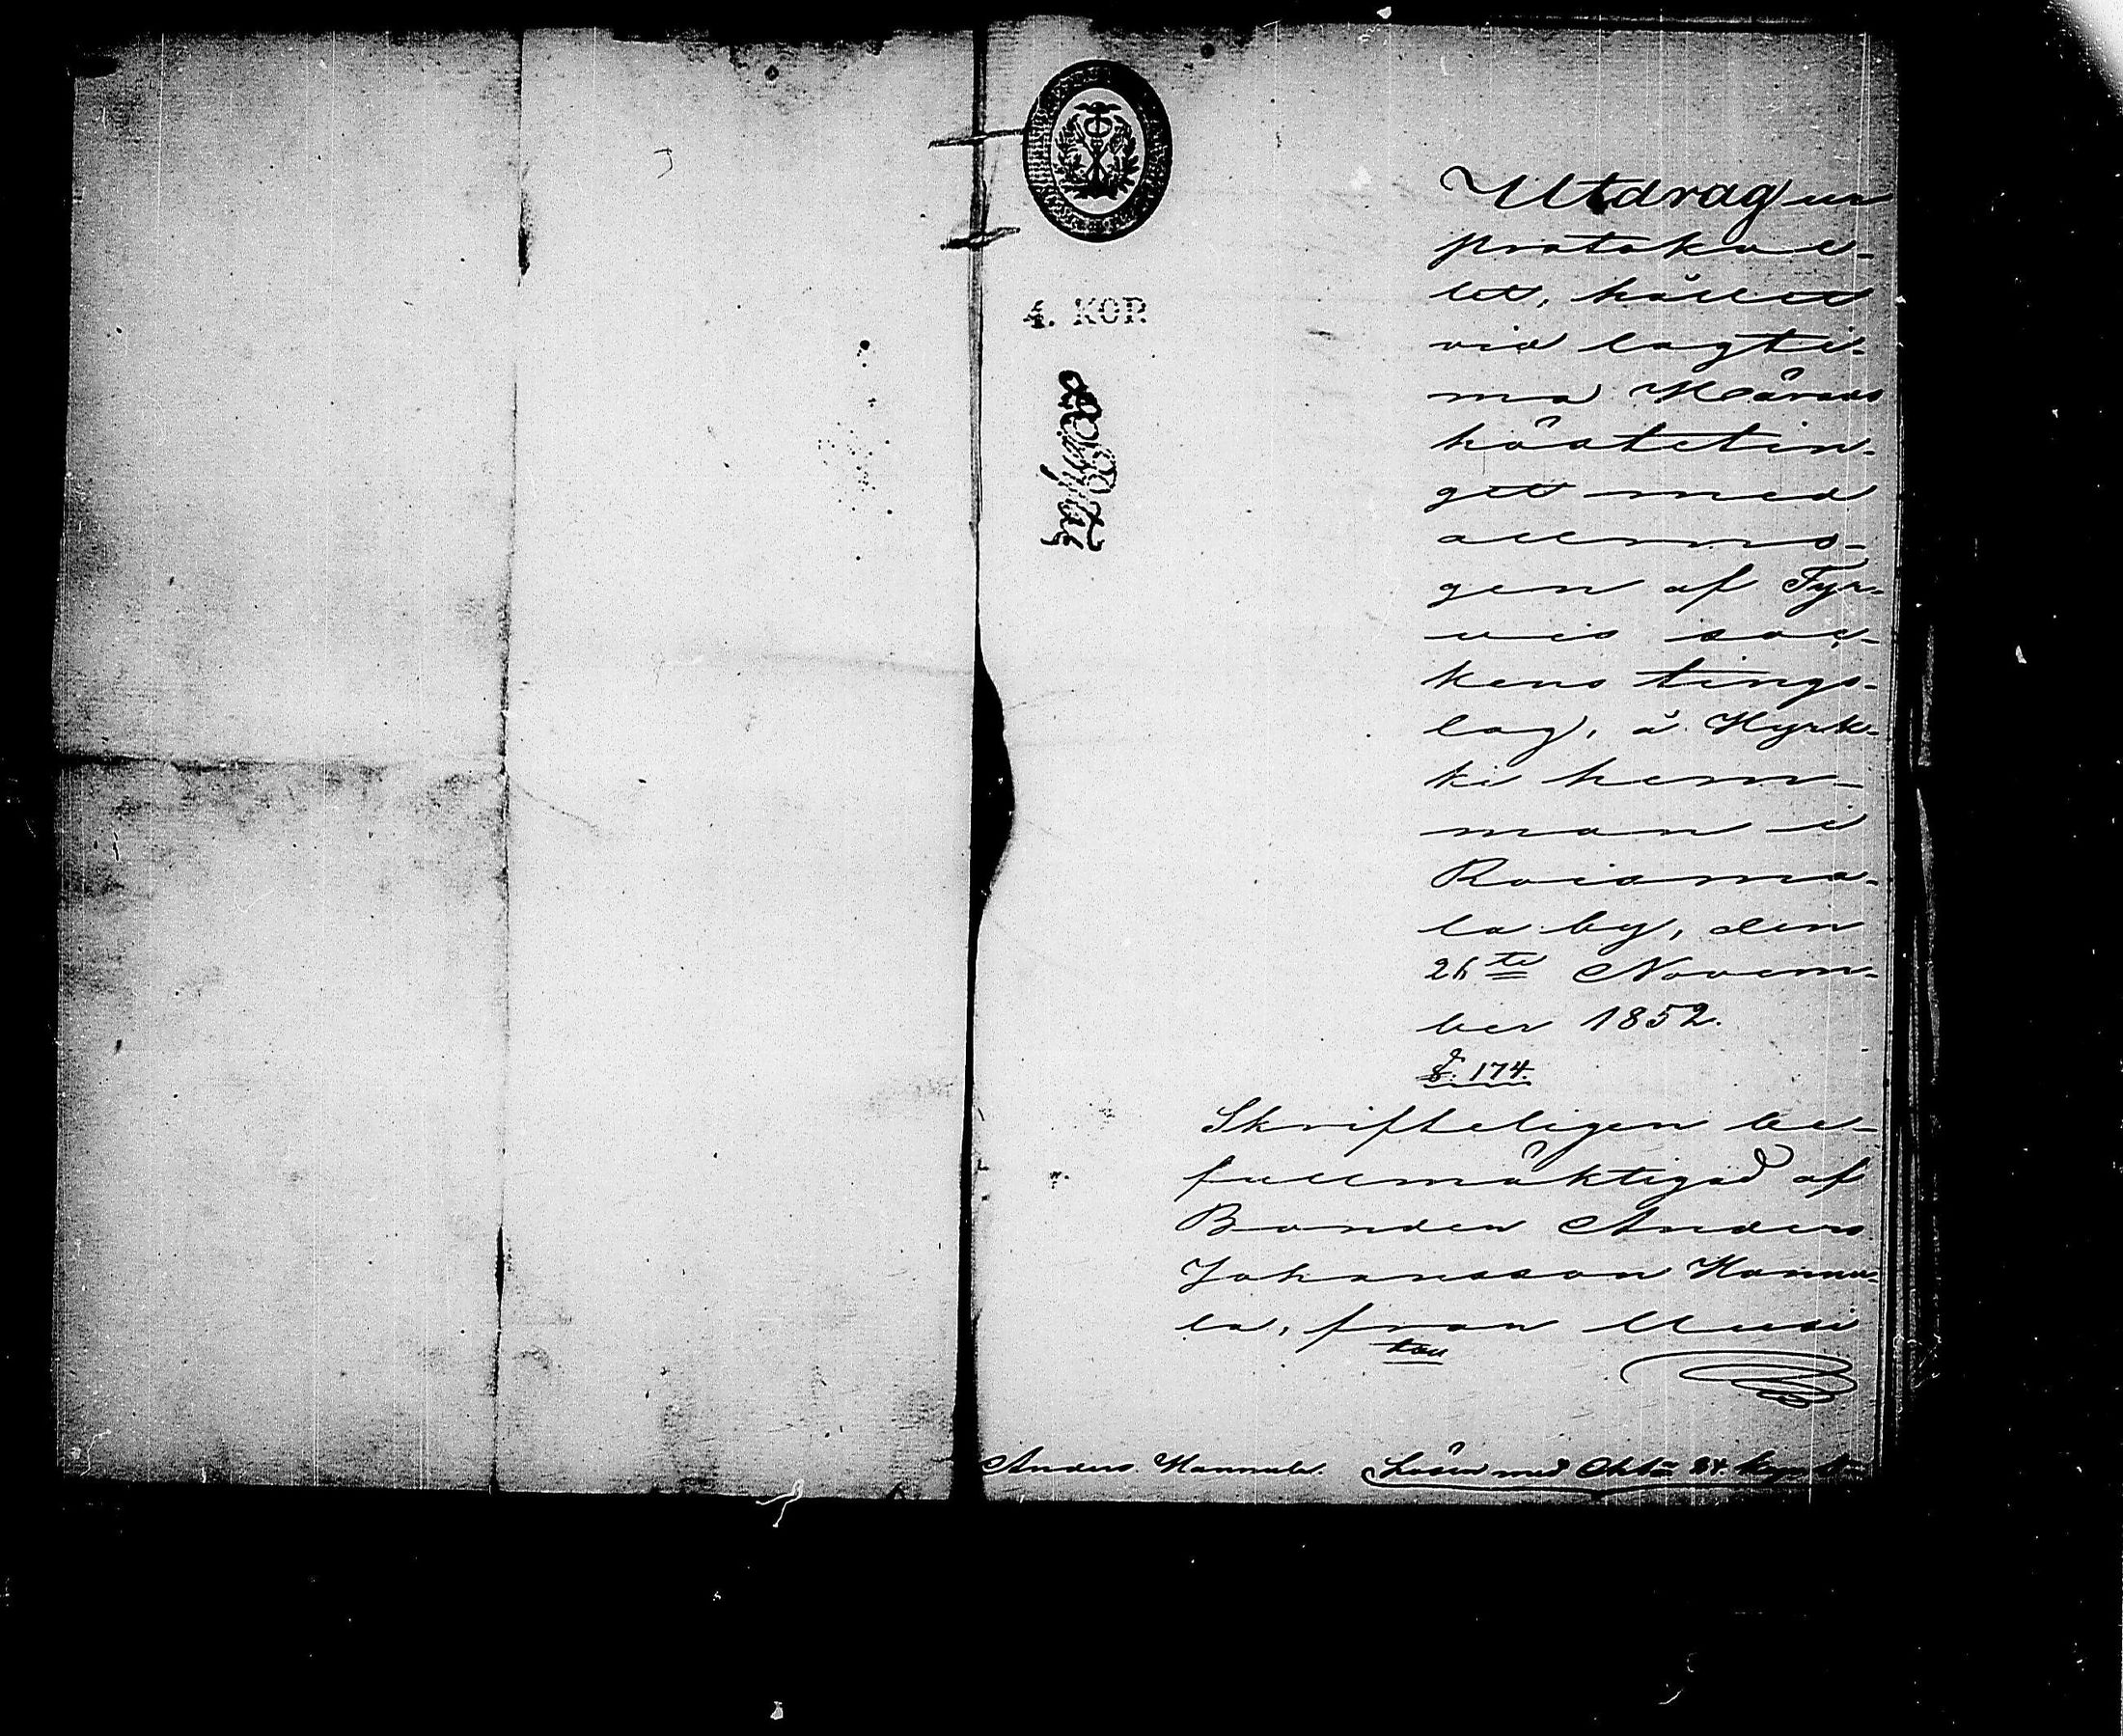 4. KOP.
Utdrag ur
protokol-
let, hållet
vid lagti-
ma Härads
hösteting-
get med
allmo-
gen af Tyr-
vis soc-
kens tings-
lag, å Kyrk-
ki hem-
man i
Roisma-
la by, den
26te Novem-
ber 1852.
§. 174.
Skrifteligen be-
fullmäktigad af
Bonden Anders
Johansson Hannu-
la, från Uusi
Anders Hannula. Lösen med Chta 84. kop